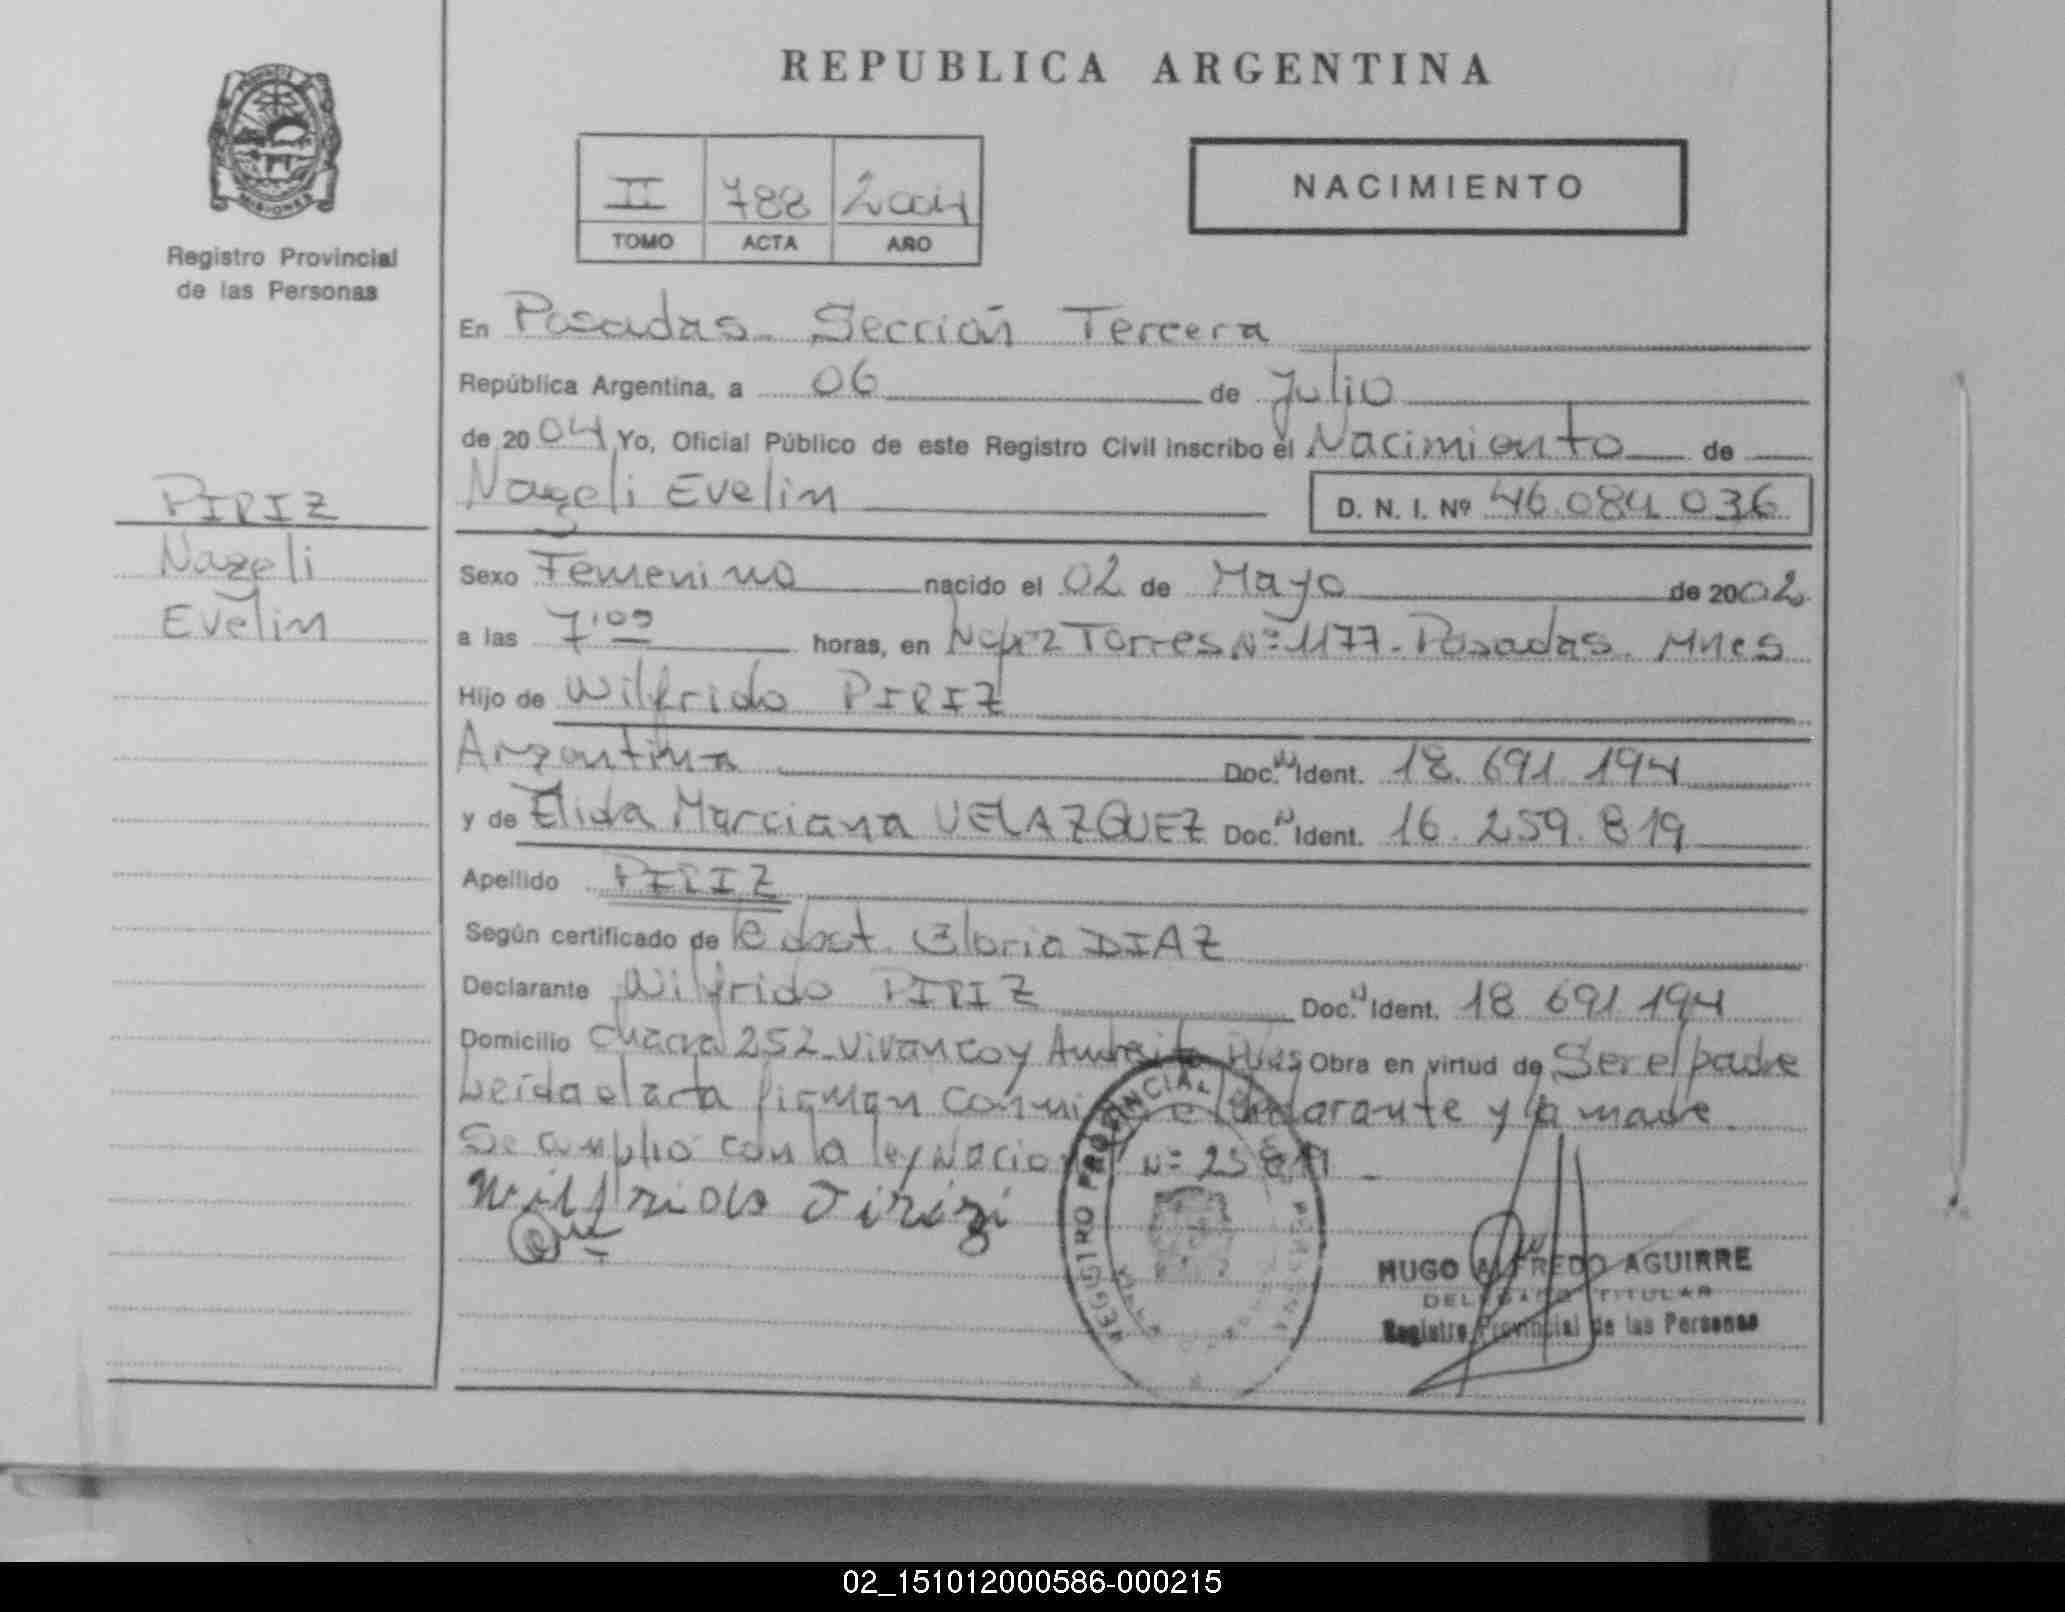 REPUBLICA ARGENTINA
MISIONES
Registro Provincial
de las Personas
II 788 2004
TOMO ACTA AÑO
NACIMIENTO
En Posadas Sección Tercera
República Argentina, a 06 de Julio
de 2004 Yo, Oficial Público de este Registro Civil inscribo el Nacimiento de
Nazeli Evelin D. N. I. Nº 46.084.036
PIRIZ
Nazeli
Evelin
Sexo Femenino nacido el 02 de Mayo de 2002
a las 7,00 horas, en López Torres Nº 1177 - Posadas. Mnes
Hijo de Wilfrido PIRIZ
Argentina Doc. Ident. 18.691.194
y de Elida Marciana VELAZQUEZ Doc. Ident. 16.259.819
Apellido PIRIZ
Según certificado de dact. Gloria DIAZ
Declarante Wilfrido PIRIZ Doc. Ident. 18 691 194
Domicilio Chacra 252 Vivanco y Obra en virtud de Ser el padre
Leída el acta firman declarante y la madre
Se cumplió con la ley Nº
Wilfrido
REGISTRO PROVINCIAL
HUGO ALFREDO AGUIRRE
DELEGADO TITULAR
Registro Provincial de las Personas
02_151012000586-000215